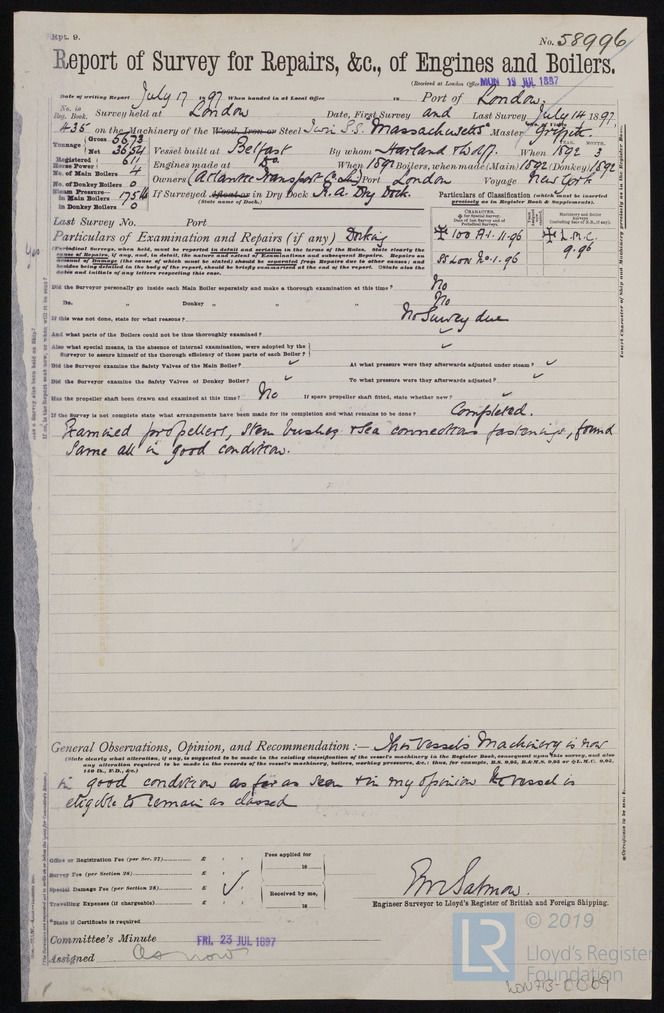 Rpt. 9.
No. 58996
Report of Survey for Repairs, &c., of Engines and Boilers.
(Received at London Office MON 19 JUL 1897
Date of writing Report July 17 1897 When handed in at Local Office 18 Port of London
No. in Reg. Book. Survey held at London Date, First Survey and Last Survey July 14 1897
435 on the Machinery of the Wood, Iron or Steel Twin S.S. Massachusetts Master Griffith
Tonnage Gross 5673 Net 3654 Vessel built at Belfast By whom Harland & Wolff. When 1892 3
Registered Horse Power 611 Engines made at Do. When 1892 Boilers, when made (Main) 1892 (Donkey) 1892
No. of Main Boilers 4 Owners (Atlantic Transport Co Ld) Port London Voyage New York
No. of Donkey Boilers 0
Steam Pressure in Main Boilers 175 lb If Surveyed Afloat or in Dry Dock R.A. Dry Dock.
in Donkey Boilers 0 (State name of Dock.)
Particulars of Classification (which must be inserted precisely as in Register Book & Supplements).
Last Survey No. Port
CHARACTER.
Machinery and Boiler Surveys
✠ 100 A.1. 11.96
✠ L.M.C. 9.96
SS Lon No.1.96
Particulars of Examination and Repairs (if any) Docking
(Periodical Surveys, when held, must be reported in detail and seriatim in the terms of the Rules. State clearly the
Did the Surveyor personally go inside each Main Boiler separately and make a thorough examination at this time? No
Do. " Donkey " " " " No
If this was not done, state for what reasons? No Survey due
And what parts of the Boilers could not be thus thoroughly examined? ✓
Also what special means, in the absence of internal examination, were adopted by the
Surveyor to assure himself of the thorough efficiency of those parts of each Boiler? ✓
Did the Surveyor examine the Safety Valves of the Main Boiler? ✓ At what pressure were they afterwards adjusted under steam? ✓
Did the Surveyor examine the Safety Valves of Donkey Boiler? ✓ To what pressure were they afterwards adjusted? ✓
Has the propeller shaft been drawn and examined at this time? No If spare propeller shaft fitted, state whether new? ✓
If the Survey is not complete state what arrangements have been made for its completion and what remains to be done? Completed.
Examined propellers, stern bushes & sea connections fastenings, found
same all in good condition.
General Observations, Opinion, and Recommendation:— This Vessel's Machinery is now
(State clearly what alteration, if any, is suggested to be made in the existing classification of the vessel's machinery in the Register Book, consequent upon this survey, and also
any alteration required to be made in the records of the vessel's machinery, boilers, working pressures, &c.; thus, for example, B.S. 9,95, B.& M.S. 9,95 or ✠L.M.C. 9,95,
140 lb., F.D., &c.)
in good condition as far as seen & in my opinion the vessel is
eligible to remain as classed
Office or Registration Fee (per Sec. 27) £
Fees applied for 18
Survey Fee (per Section 28) £
Special Damage Fee (per Section 28) £ ✓
Received by me, 18
Travelling Expenses (if chargeable) £
Salmon.
Engineer Surveyor to Lloyd's Register of British and Foreign Shipping.
*State if Certificate is required
Committee's Minute FRI. 23 JUL 1897
Assigned As now
LR © 2019
Lloyd's Register
Foundation